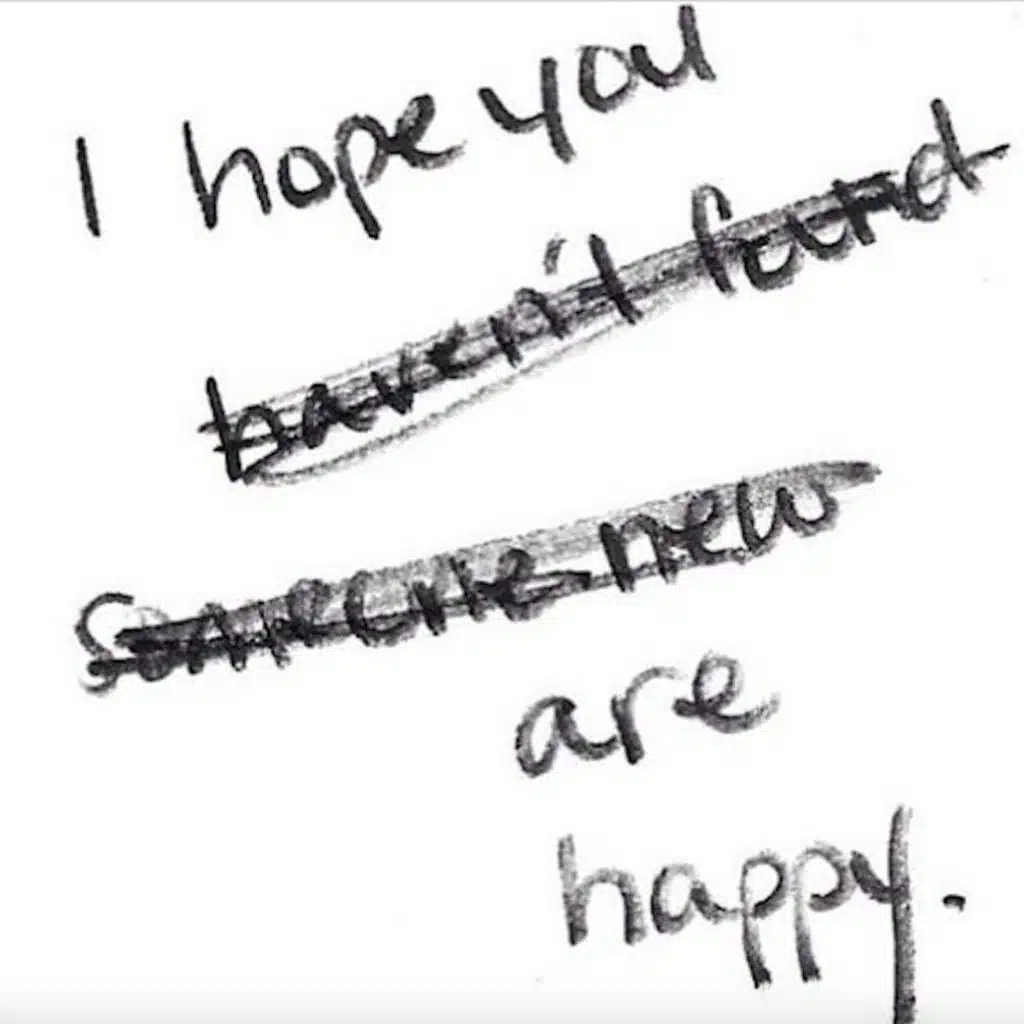 I hope you
haven't found
someone new
are
happy.